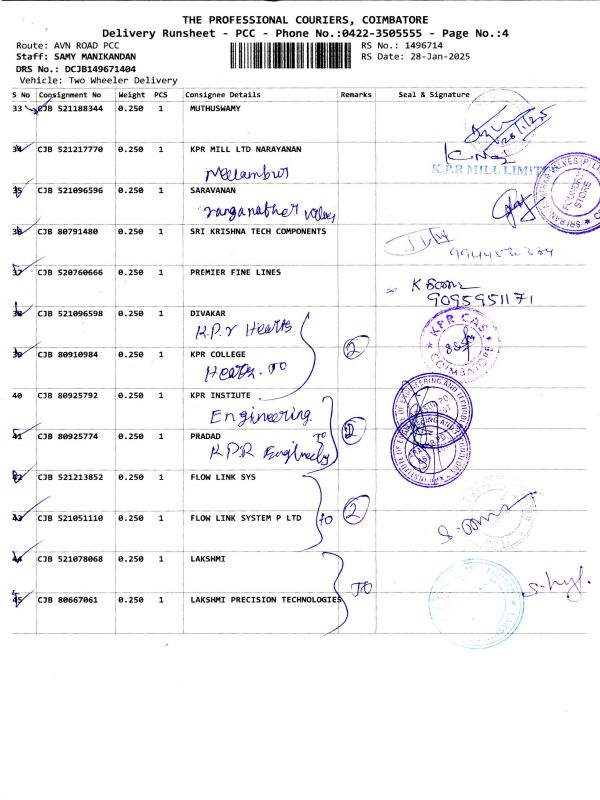 THE PROFESSIONAL COURIERS, COIMBATORE
Delivery Runsheet - PCC - Phone No.:0422-3505555 - Page No.:4
Route: AVN ROAD PCC
RS No.: 1496714
Staff: SAMY MANIKANDAN
RS Date: 28-Jan-2025
DRS No.: DCJB149671404
Vehicle: Two Wheeler Delivery
S No Consignment No Weight PCS Consignee Details Remarks Seal & Signature
33 CJB 521188344 0.250 1 MUTHUSWAMY
34 CJB 521217770 0.250 1 KPR MILL LTD NARAYANAN
K.P.R MILL LIMITED
Neelambur
35 CJB 521096596 0.250 1 SARAVANAN
FOUNDRY STORE
Ranganather valves
36 CJB 80791480 0.250 1 SRI KRISHNA TECH COMPONENTS
37 CJB 520760666 0.250 1 PREMIER FINE LINES
9095951171
38 CJB 521096598 0.250 1 DIVAKAR
K.P.r Hearts
KPR CAS
COIMBATORE
39 CJB 80910984 0.250 1 KPR COLLEGE
2
Hearts. TO
40 CJB 80925792 0.250 1 KPR INSTIUTE
Engineering
41 CJB 80925774 0.250 1 PRADAD
TO
2
K.P.R Engineering
42 CJB 521213852 0.250 1 FLOW LINK SYS
43 CJB 521051110 0.250 1 FLOW LINK SYSTEM P LTD
TO
2
44 CJB 521078068 0.250 1 LAKSHMI
TO
45 CJB 80667061 0.250 1 LAKSHMI PRECISION TECHNOLOGIES